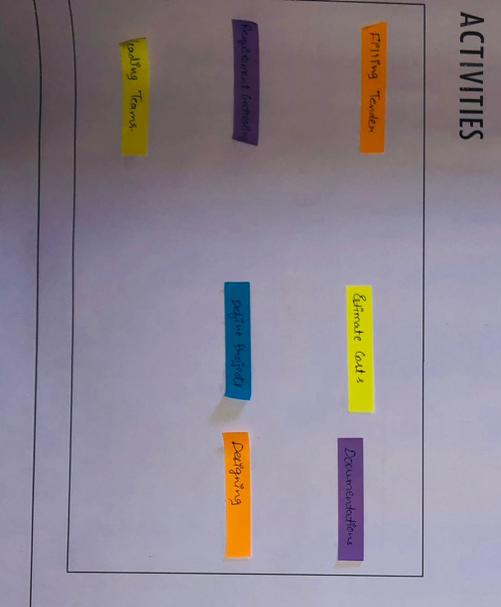 ACTIVITIES
Filling Tender
Estimate Costs
Documentations
Requirement Gathering
Define Projects
Designing
Leading Teams.